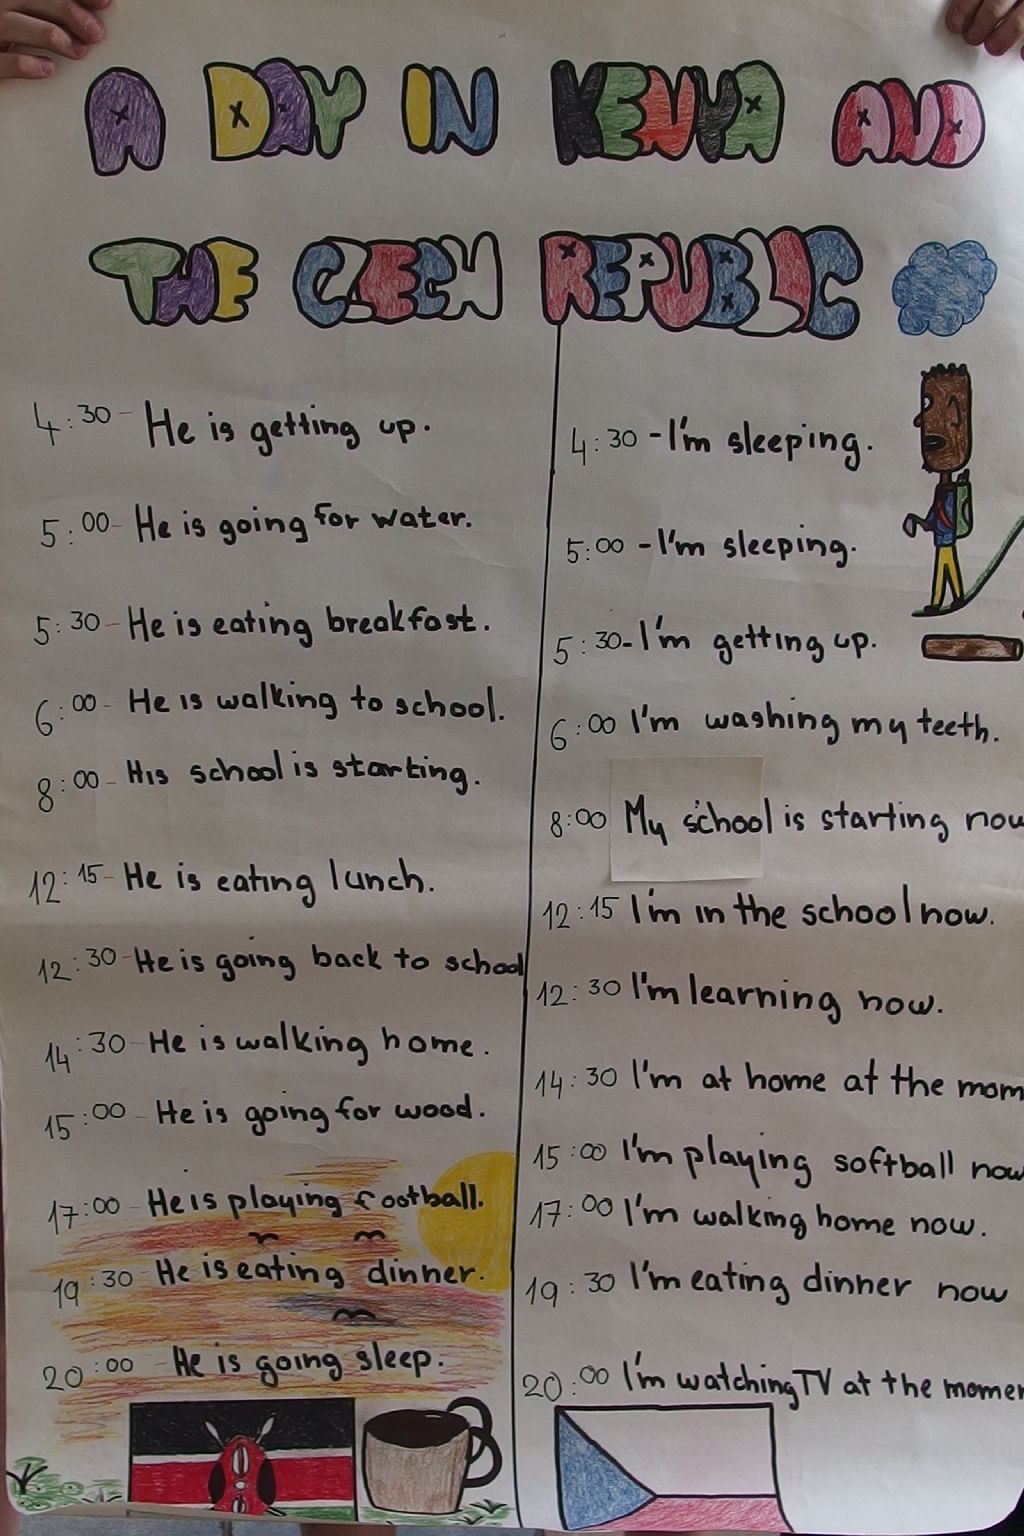 A DAY IN KENYA AND
THE CZECH REPUBLIC
4:30 - He is getting up.
5:00 - He is going for water.
5:30 - He is eating breakfast.
6:00 - He is walking to school.
8:00 - His school is starting.
12:15 - He is eating lunch.
12:30 - He is going back to school
14:30 - He is walking home.
15:00 - He is going for wood.
17:00 - He is playing football.
19:30 - He is eating dinner.
20:00 - He is going sleep.
4:30 - I'm sleeping.
5:00 - I'm sleeping.
5:30 - I'm getting up.
6:00 I'm washing my teeth.
8:00 My school is starting now
12:15 I'm in the school now.
12:30 I'm learning now.
14:30 I'm at home at the mom
15:00 I'm playing softball now
17:00 I'm walking home now.
19:30 I'm eating dinner now
20:00 I'm watching TV at the momen